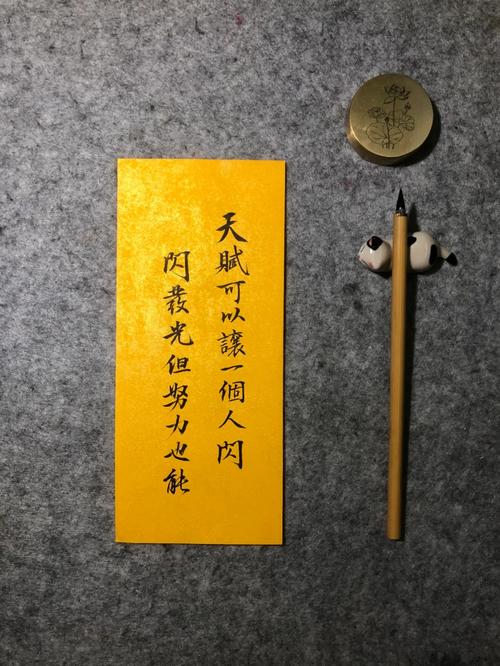 天賦可以讓一個人閃
閃發光但努力也能